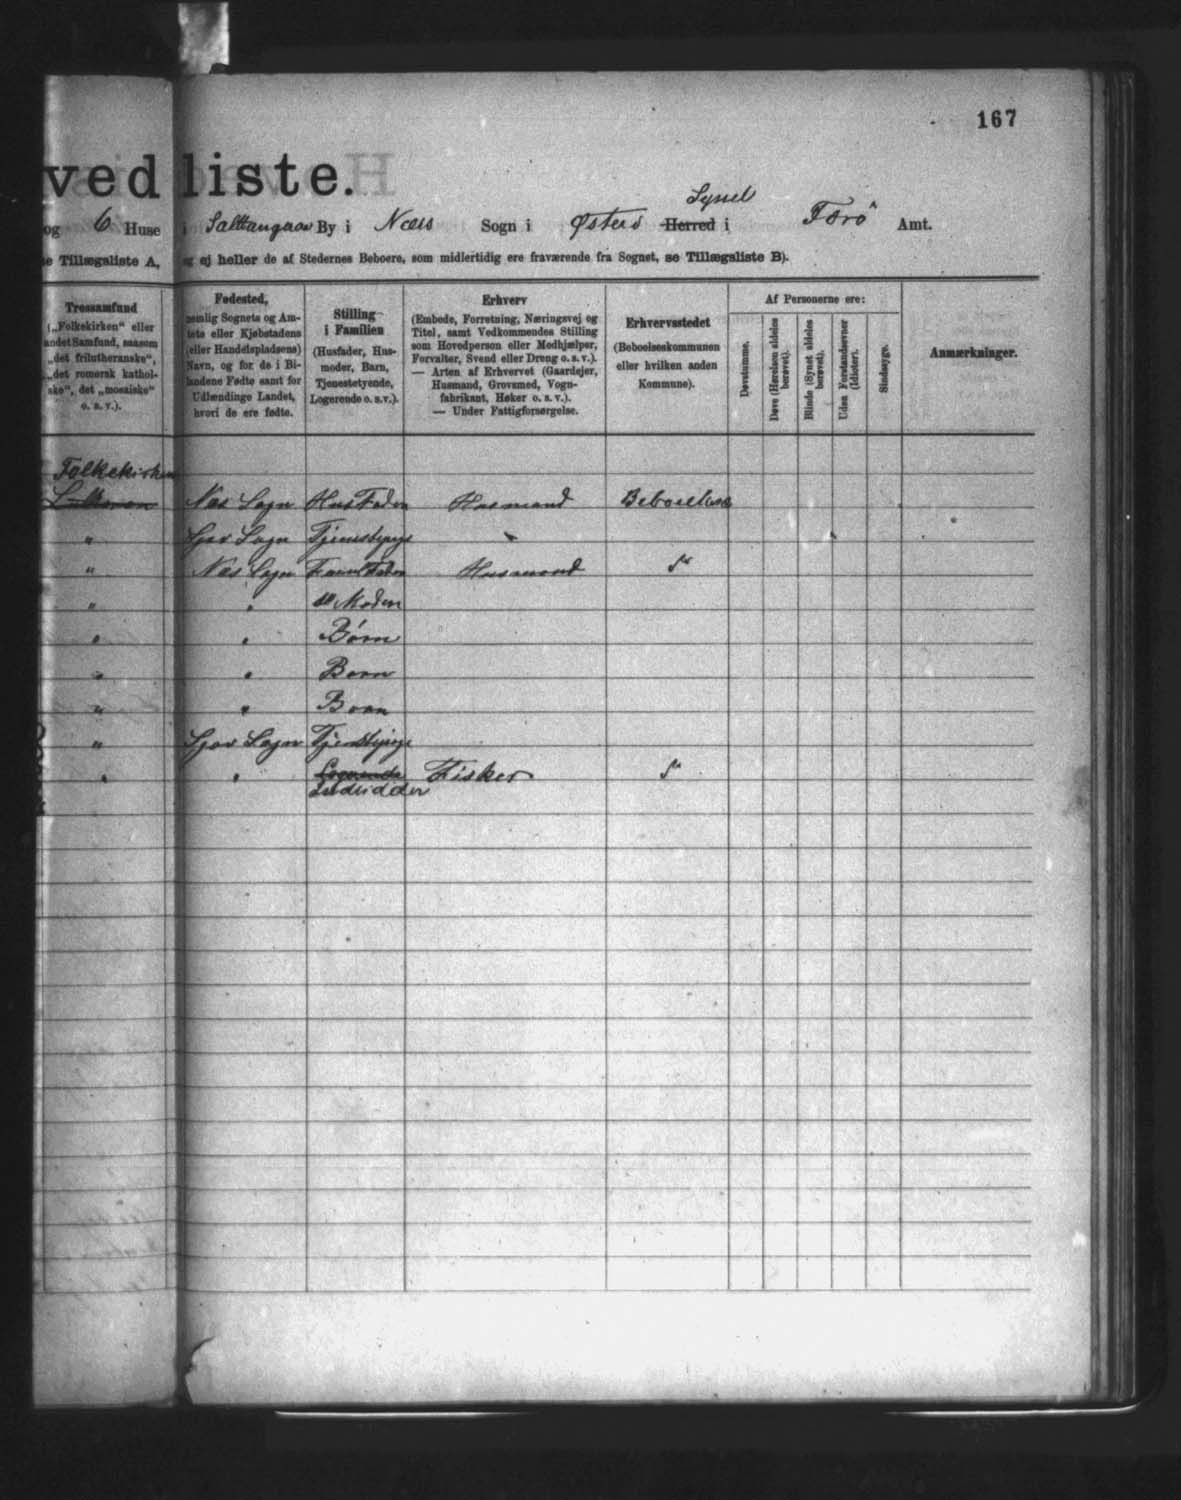 167
ved liste.
Syssel
og 6 Huse i Salttangaar By i Næs Sogn i Østerö Herred i Færö Amt.
se Tillægsliste A, og ej heller de af Stedernes Beboere, som midlertidig ere fraværende fra Sognet, se Tillægsliste B).
Trossamfund
(„Folkekirken“ eller
andet Samfund, saasom
„det frilutheranske“,
„det romersk kathol-
ske“, det „mosaiske“
o. s. v.).
Fødested,
nemlig Sognets og Am-
tets eller Kjøbstadens
(eller Handelspladsens)
Navn, og for de i Bi-
landene Fødte samt for
Udlændinge Landet,
hvori de ere fødte.
Stilling
i Familien
(Husfader, Hus-
moder, Barn,
Tjenestetyende,
Logerende o. s. v.).
Erhverv
(Embede, Forretning, Næringsvej og
Titel, samt Vedkommendes Stilling
som Hovedperson eller Medhjælper,
Forvalter, Svend eller Dreng o. s. v.).
— Arten af Erhvervet (Gaardejer,
Husmand, Grovsmed, Vogn-
fabrikant, Høker o. s. v.).
— Under Fattigforsørgelse.
Erhvervsstedet
(Beboelseskommunen
eller hvilken anden
Kommune).
Af Personerne ere:
Døvstumme.
Døve (Hørelsen aldeles
berøvet).
Blinde (Synet aldeles
berøvet).
Uden Forstandsevner
(Idioter).
Sindssyge.
Anmærkninger.
Folkekirken
Næs Sogn Husfader Husmand
" Sjov Sogn
" Næs Sogn Husmand
" " Moder
" " Børn
" " Born
" " Born
" Sjov Sogn
" " Logerende Fisker
Inderidder